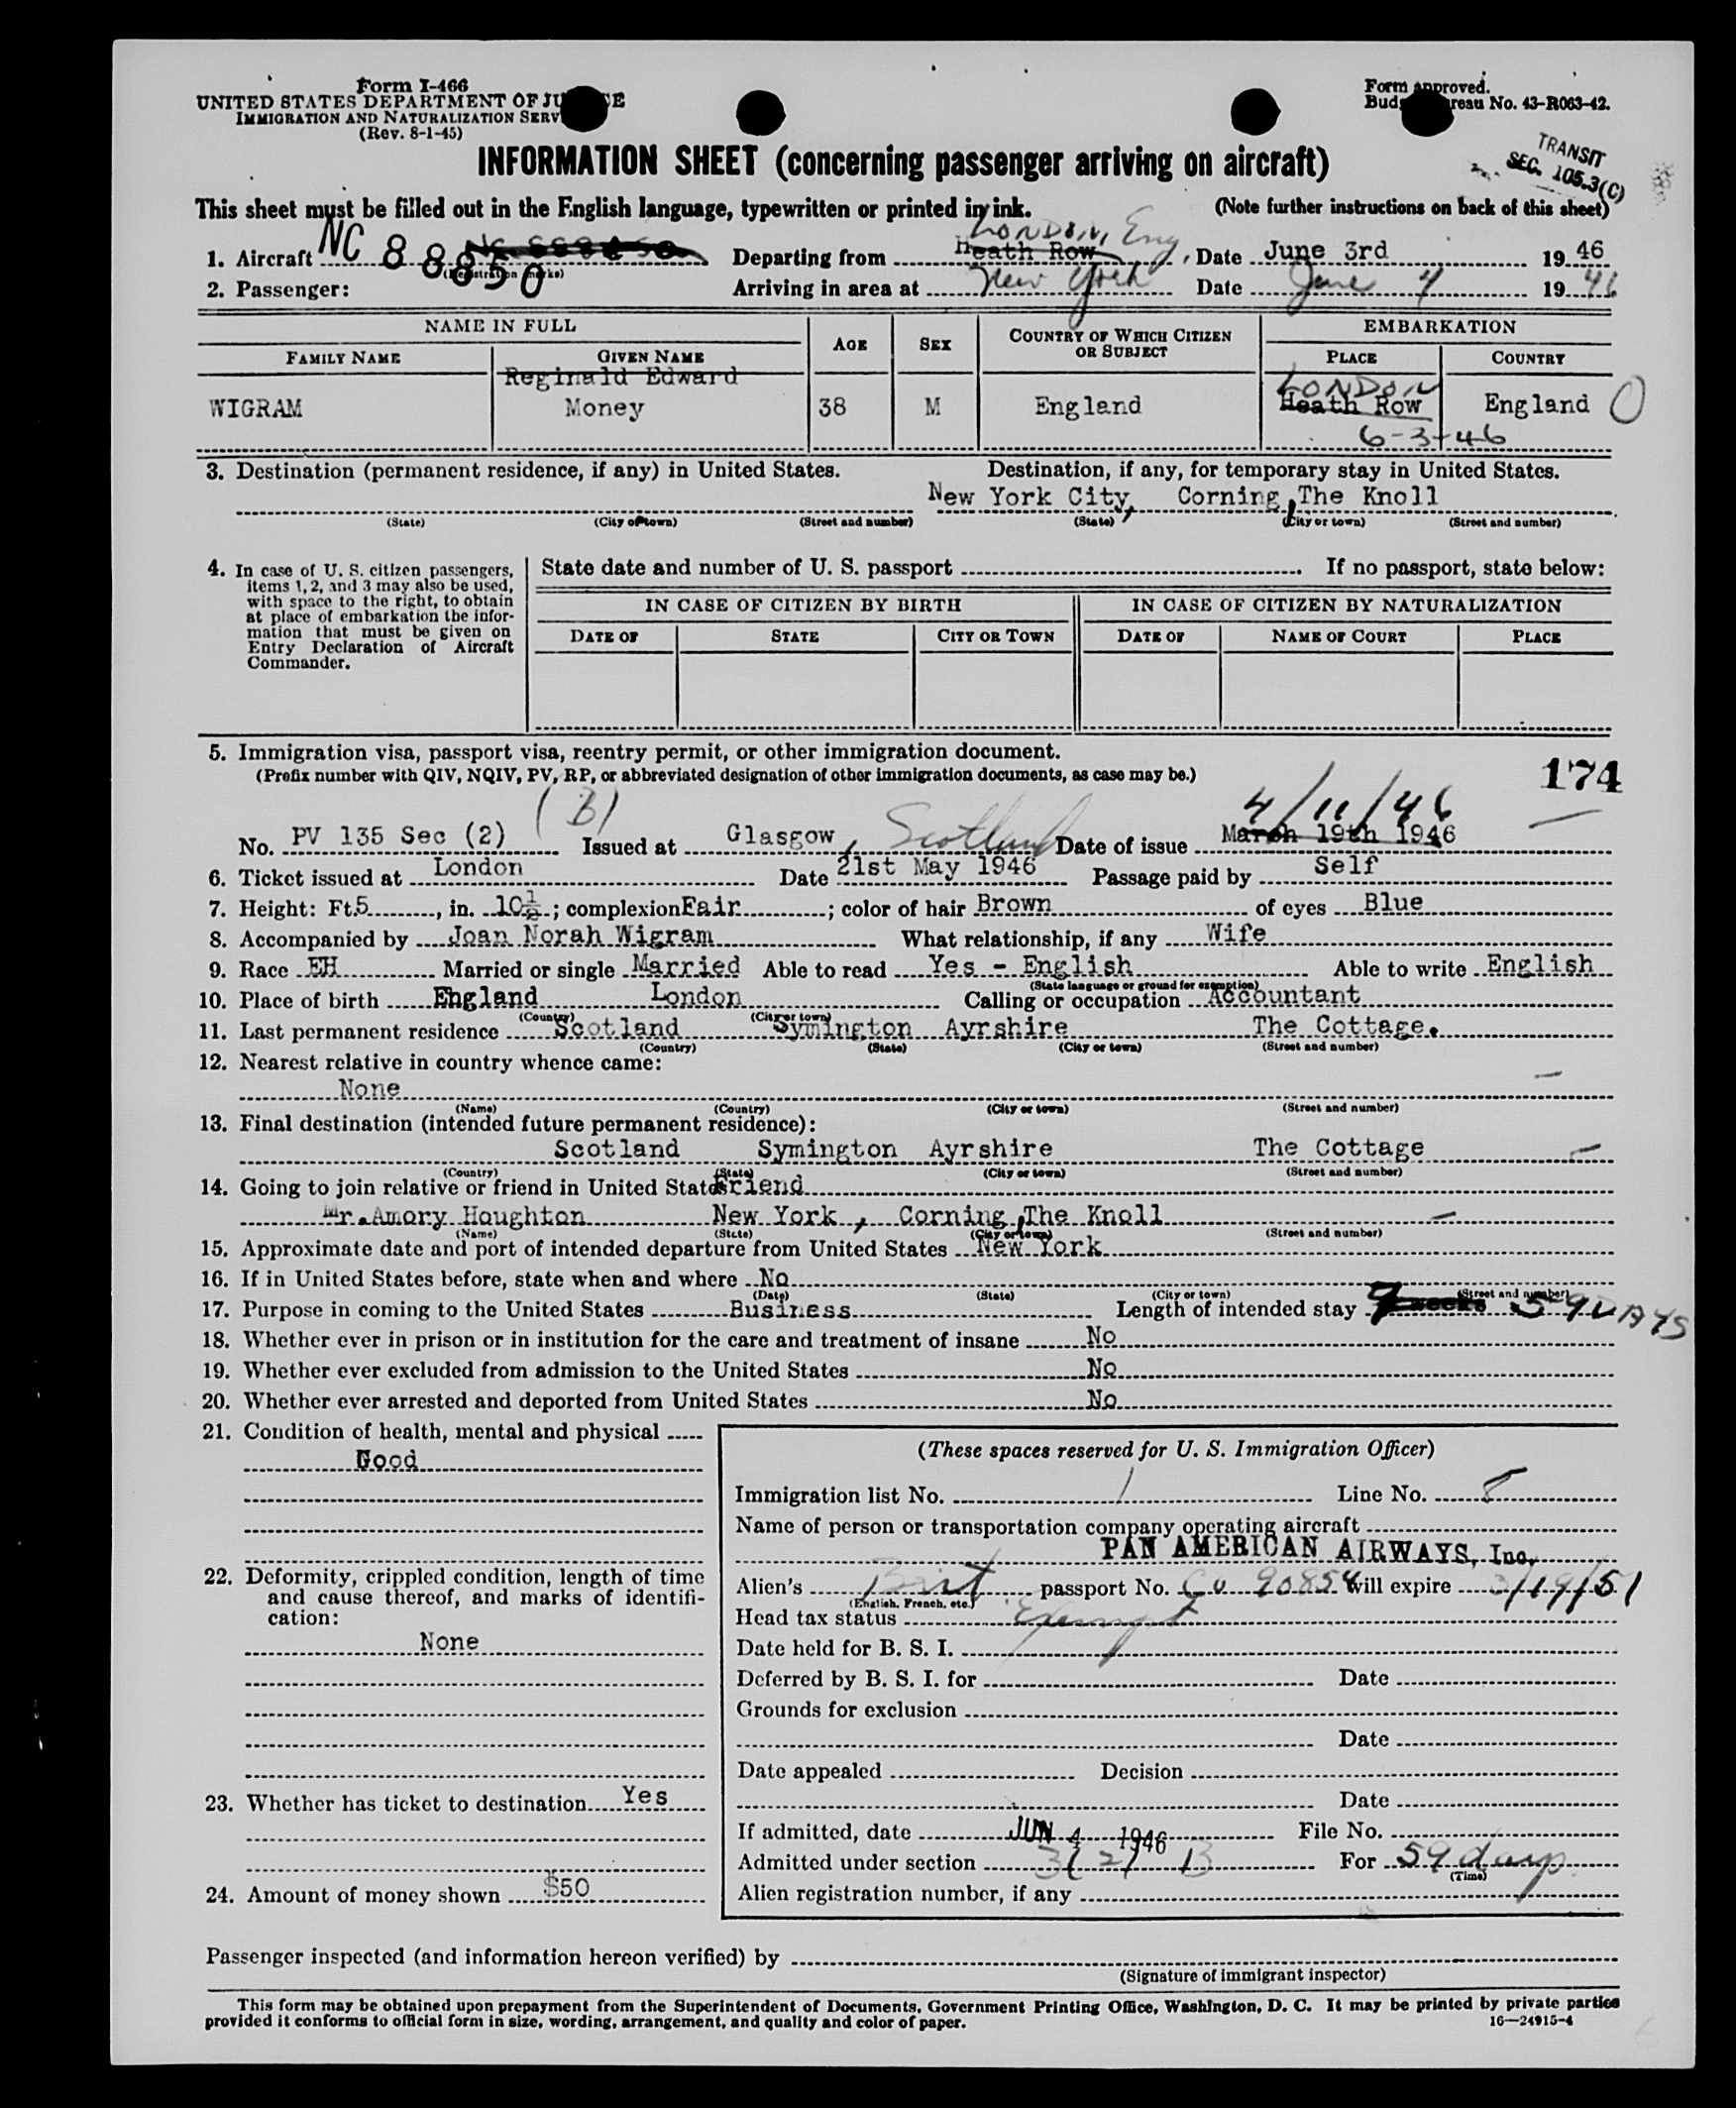 Form I-466
UNITED STATES DEPARTMENT OF JU CE
IMMIGRATION AND NATURALIZATION SERV
(Rev. 8-1-45)
Form approved.
Bud reau No. 43-R063-42.
TRANSIT
SEC. 105.3(C)
INFORMATION SHEET (concerning passenger arriving on aircraft)
This sheet must be filled out in the English language, typewritten or printed in ink. (Note further instructions on back of this sheet)
LONDON, Eng
1. Aircraft NC 88850 (Registration marks) Departing from Heath Row, Date June 3rd 1946
2. Passenger: Arriving in area at New York Date June 4 1946
NAME IN FULL AGE SEX COUNTRY OF WHICH CITIZEN OR SUBJECT EMBARKATION
FAMILY NAME GIVEN NAME PLACE COUNTRY
Reginald Edward LONDON
WIGRAM Money 38 M England Heath Row England 0
6-3-46
3. Destination (permanent residence, if any) in United States. Destination, if any, for temporary stay in United States.
New York City, Corning, The Knoll
(State) (City or town) (Street and number) (State) (City or town) (Street and number)
4. In case of U. S. citizen passengers, items 1, 2, and 3 may also be used, with space to the right, to obtain at place of embarkation the information that must be given on Entry Declaration of Aircraft Commander.
State date and number of U. S. passport If no passport, state below:
IN CASE OF CITIZEN BY BIRTH IN CASE OF CITIZEN BY NATURALIZATION
DATE OF STATE CITY OR TOWN DATE OF NAME OF COURT PLACE
5. Immigration visa, passport visa, reentry permit, or other immigration document.
(Prefix number with QIV, NQIV, PV, RP, or abbreviated designation of other immigration documents, as case may be.) 174
(B) 4/11/46
No. PV 135 Sec (2) Issued at Glasgow, Scotland Date of issue March 19th 1946
6. Ticket issued at London Date 21st May 1946 Passage paid by Self
7. Height: Ft. 5, in. 10½; complexion Fair; color of hair Brown of eyes Blue
8. Accompanied by Joan Norah Wigram What relationship, if any Wife
9. Race EH Married or single Married Able to read Yes - English Able to write English
(State language or ground for exemption)
10. Place of birth England London Calling or occupation Accountant
(Country) (City or town)
11. Last permanent residence Scotland Symington Ayrshire The Cottage.
(Country) (State) (City or town) (Street and number)
12. Nearest relative in country whence came:
None
(Name) (Country) (City or town) (Street and number)
13. Final destination (intended future permanent residence):
Scotland Symington Ayrshire The Cottage
(Country) (State) (City or town) (Street and number)
14. Going to join relative or friend in United States Friend
Mr. Amory Houghton New York, Corning, The Knoll
(Name) (State) (City or town) (Street and number)
15. Approximate date and port of intended departure from United States New York
16. If in United States before, state when and where No
(Date) (State) (City or town) (Street and number)
17. Purpose in coming to the United States Business Length of intended stay 59 DAYS
18. Whether ever in prison or in institution for the care and treatment of insane No
19. Whether ever excluded from admission to the United States No
20. Whether ever arrested and deported from United States No
21. Condition of health, mental and physical
Good
22. Deformity, crippled condition, length of time and cause thereof, and marks of identification:
None
23. Whether has ticket to destination Yes
24. Amount of money shown $50
(These spaces reserved for U. S. Immigration Officer)
Immigration list No. 1 Line No. 8
Name of person or transportation company operating aircraft
PAN AMERICAN AIRWAYS, Inc.
Alien's Brit passport No. 90854 will expire 3/19/51
(English, French, etc.)
Head tax status Exempt
Date held for B. S. I.
Deferred by B. S. I. for Date
Grounds for exclusion
Date
Date appealed Decision
Date
If admitted, date JUN 4 1946 File No.
Admitted under section 3(2) B For 59 days
(Time)
Alien registration number, if any
Passenger inspected (and information hereon verified) by
(Signature of immigrant inspector)
This form may be obtained upon prepayment from the Superintendent of Documents, Government Printing Office, Washington, D. C. It may be printed by private parties
provided it conforms to official form in size, wording, arrangement, and quality and color of paper. 16—24915-4